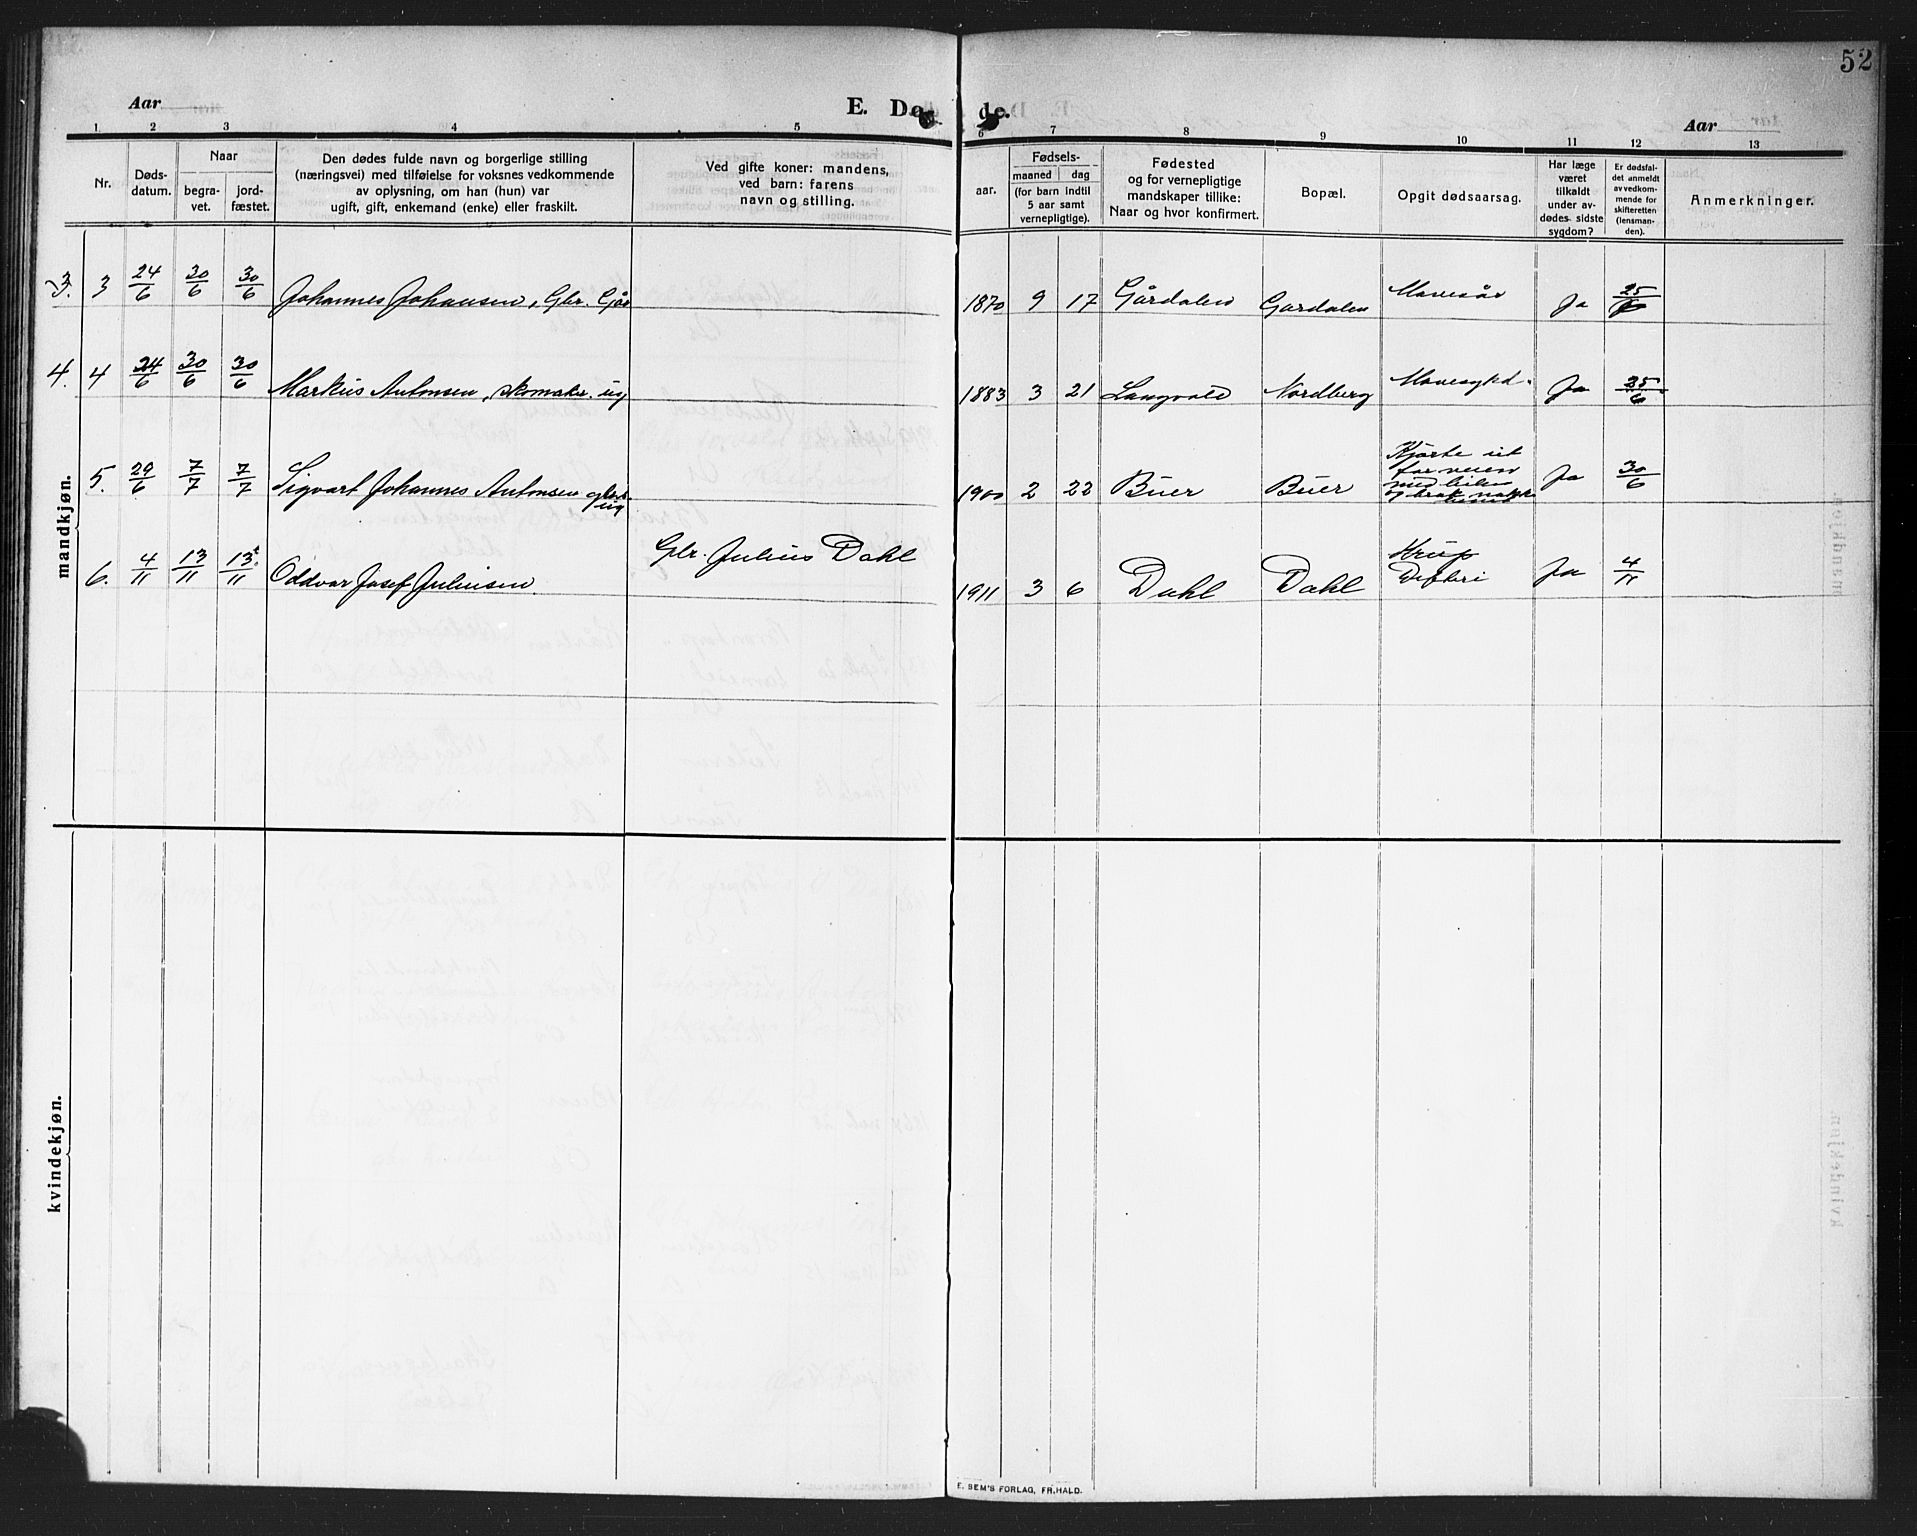 52
Aar
E. Dø de.
Aar
1 2 3 4 5 6 7 8 9 10 11 12 13
Nr.
Døds-
datum.
Naar
begra-
vet.
jord-
fæstet.
Den dødes fulde navn og borgerlige stilling
(næringsvei) med tilføielse for voksnes vedkommende
av oplysning, om han (hun) var
ugift, gift, enkemand (enke) eller fraskilt.
Ved gifte koner: mandens,
ved barn: farens
navn og stilling.
aar.
Fødsels-
maaned dag
(for barn indtil
5 aar samt
vernepligtige).
Fødested
og for vernepligtige
mandskaper tillike:
Naar og hvor konfirmert.
Bopæl.
Opgit dødsaarsag.
Har læge
været
tilkaldt
under av-
dødes sidste
sygdom?
Er dødsfal-
det anmeldt
av vedkom-
mende for
skifteretten
(lensman-
den).
Anmerkninger.
mandkjøn.
3. 3 24/6 30/6 30/6 Johannes Johansen, Gbr. 1870 9 17 Gårdalen Gardalen Mavesår Ja 25/6
4. 4 24/6 30/6 30/6 Markus Antonsen, skomaker. ug 1883 3 21 Langvold Nordberg Mavesykd. Ja 25/6
5. 29/6 7/7 7/7 Sigvart Johannes Antonsen
ug
1900 2 22 Buer Buer
Kjørte ut
for veien
med bilen
og brak
Ja 30/6
6. 4/11 13/11 13/11 Oddvar Josef Juliusen.
Gbr. Julius Dahl
1911 3 6 Dahl Dahl
Krup
Difteri
Ja 4/11
kvindekjøn.
E. SEM'S FORLAG, FR.HALD.